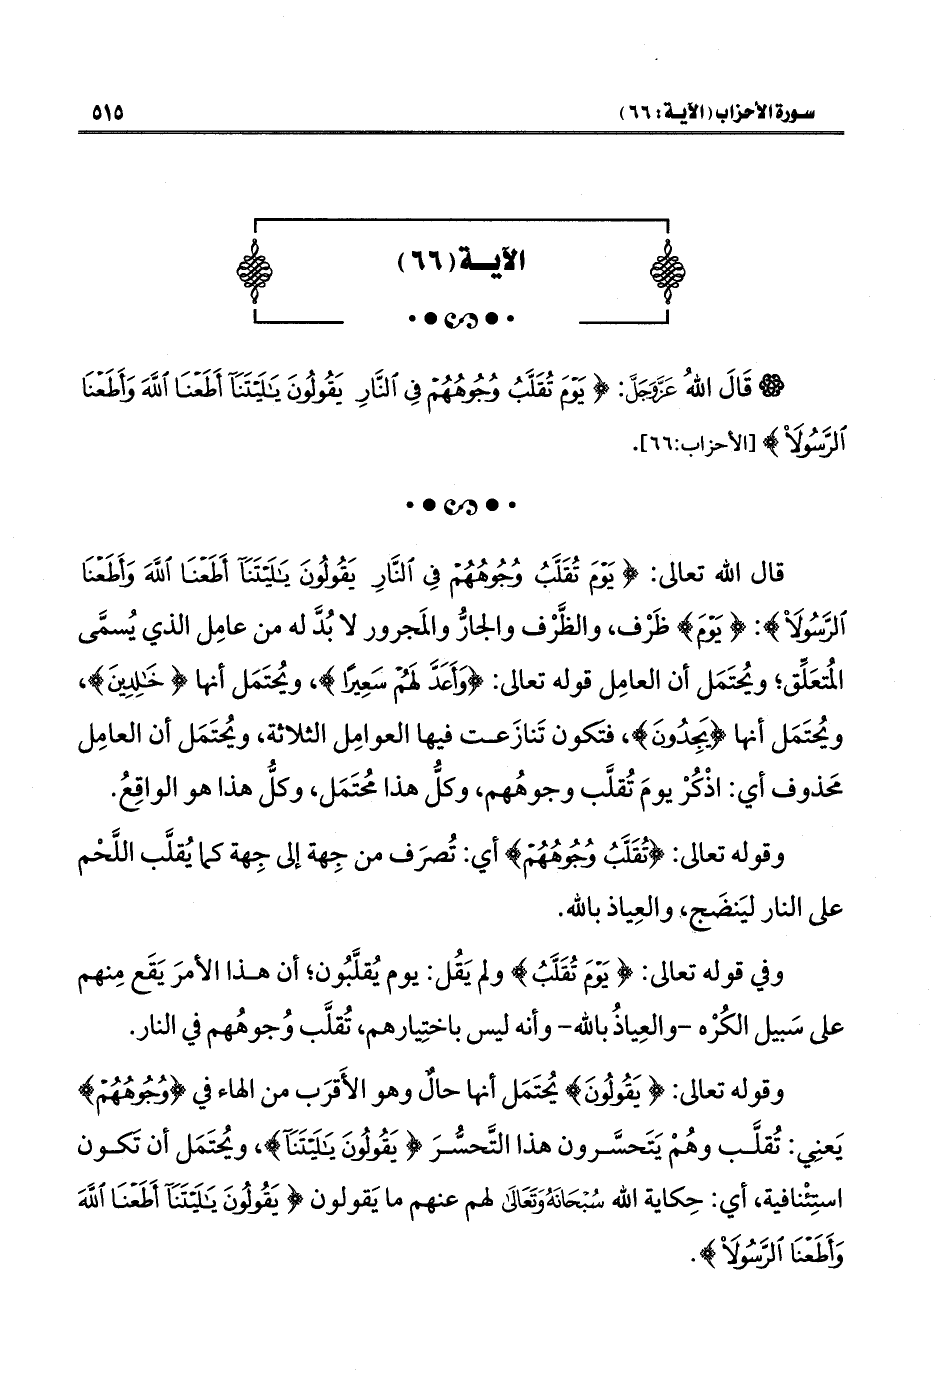 سورة الأحزاب (الآية: ٦٦) ٥١٥
الآية (٦٦)
قَالَ اللهُ عَزَّوَجَلَّ: ﴿ يَوْمَ تُقَلَّبُ وُجُوهُهُمْ فِي ٱلنَّارِ يَقُولُونَ يَٰلَيْتَنَآ أَطَعْنَا ٱللَّهَ وَأَطَعْنَا
ٱلرَّسُولَا۠ ﴾ [الأحزاب:٦٦].
قال الله تعالى: ﴿ يَوْمَ تُقَلَّبُ وُجُوهُهُمْ فِي ٱلنَّارِ يَقُولُونَ يَٰلَيْتَنَآ أَطَعْنَا ٱللَّهَ وَأَطَعْنَا
ٱلرَّسُولَا۠ ﴾: ﴿ يَوْمَ﴾ ظَرْف، والظَّرْف والجارُّ والمَجرور لا بُدَّ له من عامِل الذي يُسمَّى
المُتعَلِّق؛ ويُحتَمَل أن العامِل قوله تعالى: ﴿وَأَعَدَّ لَهُمْ سَعِيرًا ﴾، ويُحتَمَل أنها ﴿ خَٰلِدِينَ﴾،
ويُحتَمَل أنها ﴿يَجِدُونَ﴾، فتَكون تَنازَعت فيها العوامِل الثلاثة، ويُحتَمَل أن العامِل
مَحذوف أي: اذْكُرْ يومَ تُقلَّب وجوهُهم، وكلُّ هذا مُحتَمَل، وكلُّ هذا هو الواقِعُ.
وقوله تعالى: ﴿تُقَلَّبُ وُجُوهُهُمْ﴾ أي: تُصرَف من جِهة إلى جِهة كما يُقلَّب اللَّحْم
على النار ليَنضَج، والعِياذ بالله.
وفي قوله تعالى: ﴿ يَوْمَ تُقَلَّبُ ﴾ ولم يَقُل: يوم يُقلَّبُون؛ أن هذا الأمرَ يَقَع مِنهم
على سَبيل الكُرْه -والعِياذُ بالله- وأنه ليس باختِيارهم، تُقلَّب وُجوهُهم في النار.
وقوله تعالى: ﴿ يَقُولُونَ﴾ يُحتَمَل أنها حالٌ وهو الأَقرَب من الهاء في ﴿وُجُوهُهُمْ﴾
يَعنِي: تُقلَّب وهُمْ يَتَحسَّرون هذا التَّحسُّرَ ﴿ يَقُولُونَ يَٰلَيْتَنَآ﴾، ويُحتَمَل أن تَكون
استِئْنافية، أي: حِكاية الله سُبْحَانَهُ وَتَعَالَى لهم عنهم ما يَقولون ﴿ يَقُولُونَ يَٰلَيْتَنَآ أَطَعْنَا ٱللَّهَ
وَأَطَعْنَا ٱلرَّسُولَا۠ ﴾.